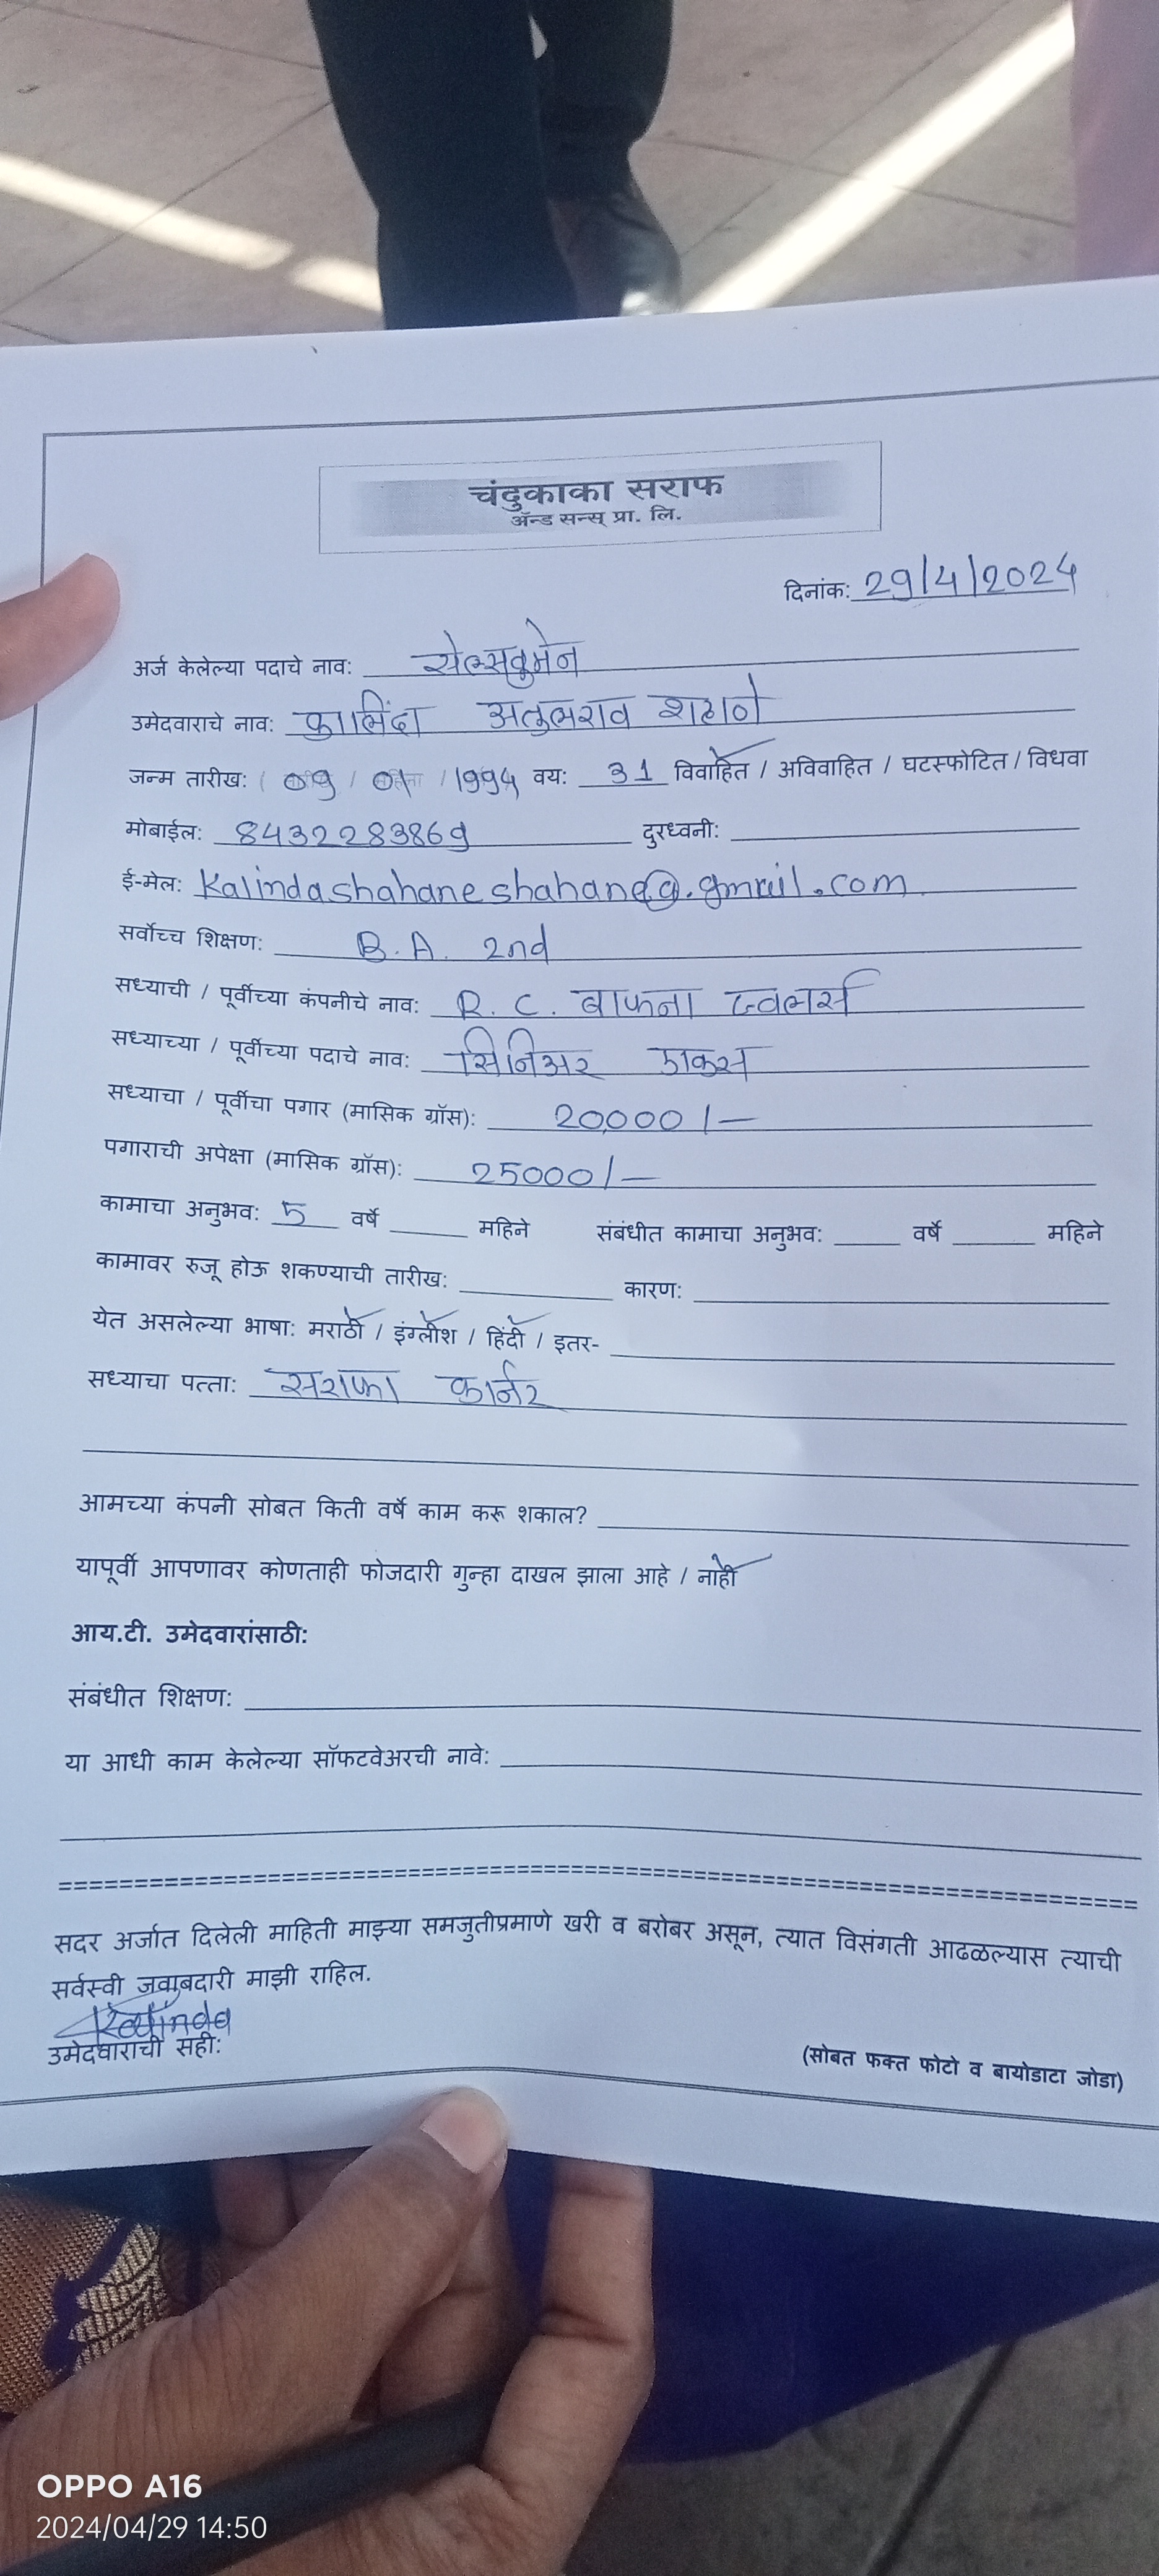 चंदुकाका सराफ
ॲन्ड सन्स् प्रा. लि.
दिनांक: 29/4/2024
अर्ज केलेल्या पदाचे नाव: सेल्सवुमेन
उमेदवाराचे नाव: कालिंदा अतुलराव शहाणे
जन्म तारीख: ( 09 / 01 / 1994 वय: 31 विवाहित / अविवाहित / घटस्फोटित / विधवा
मोबाईल: 8432283869 दुरध्वनी:
ई-मेल: Kalindashahaneshahane@.gmail.com
सर्वोच्च शिक्षण: B.A. 2nd
सध्याची / पूर्वीच्या कंपनीचे नाव: R.C. बाफना ज्वलर्स
सध्याच्या / पूर्वीच्या पदाचे नाव: सिनिअर
सध्याचा / पूर्वीचा पगार (मासिक ग्रॉस): 20,000/-
पगाराची अपेक्षा (मासिक ग्रॉस): 25000/-
कामाचा अनुभव: 5 वर्षे महिने संबंधीत कामाचा अनुभव: वर्षे महिने
कामावर रुजू होऊ शकण्याची तारीख: कारण:
येत असलेल्या भाषा: मराठी / इंग्लीश / हिंदी / इतर-
सध्याचा पत्ता: सराफा कार्नर
आमच्या कंपनी सोबत किती वर्षे काम करू शकाल?
यापूर्वी आपणावर कोणताही फोजदारी गुन्हा दाखल झाला आहे / नाही
आय.टी. उमेदवारांसाठी:
संबंधीत शिक्षण:
या आधी काम केलेल्या सॉफटवेअरची नावे:
सदर अर्जात दिलेली माहिती माझ्या समजुतीप्रमाणे खरी व बरोबर असून, त्यात विसंगती आढळल्यास त्याची
सर्वस्वी जवाबदारी माझी राहिल.
Kalinda
उमेदवाराची सही:
(सोबत फक्त फोटो व बायोडाटा जोडा)
OPPO A16
2024/04/29 14:50